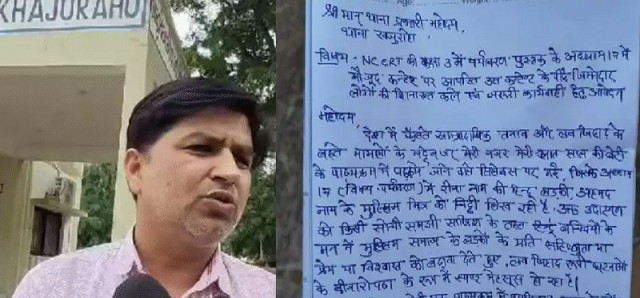 KHAJURAHO
श्री मान् थाना प्रभारी महोदय
थाना खजुराहो
विषय :- NCERT की कक्षा 3 में पर्यावरण पुस्तक के अध्याय 17 में
मौजूद कन्टेन्ट पर आपत्ति उस कन्टेन्ट के पीछे जिम्मेदार
लोगों की शिनाख्त करने एवं जरूरी कार्यवाही हेतु आवेदन
महोदय
देश में फैलते साम्प्रदायिक तनाव और लव जिहाद के
बढ़ते मामलों के मद्देनजर मेरी नजर मेरी आठ साल की बेटी
के पाठ्यक्रम में पढ़ाये जाने वाले सिलेबस पर गई, जिसके अध्याय
17 (विषय पर्यावरण) में रीना नाम की हिन्दू लड़की, अहमद
नाम के मुस्लिम मित्र को चिट्ठी लिख रही है, उक्त उदाहरण
को किसी सोची समझी साजिश के तहत हिन्दू बच्चियों के
मन में मुस्लिम समाज के लड़कों के प्रति
प्रेम या विश्वास को बढ़ावा देते हुए, लव जिहाद रूपी
के बीजारोपण के रूप में स्पष्ट महसूस हो रहा है।